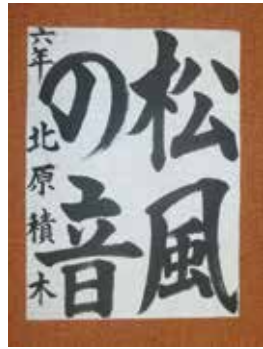 松風
の音
六年 北原積木